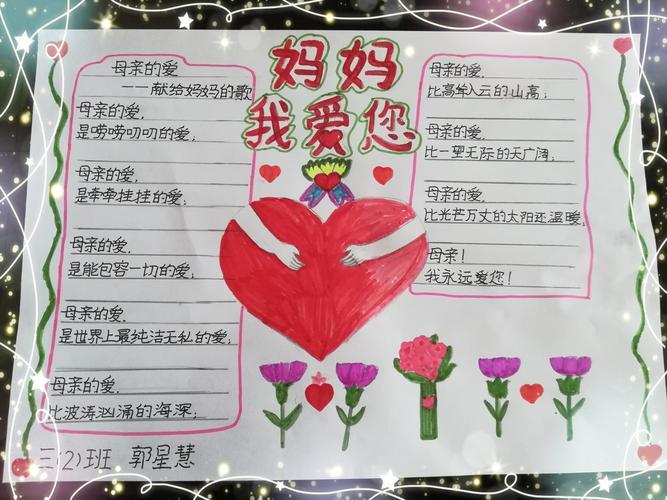 妈妈
我爱您
母亲的爱
——献给妈妈的歌
母亲的爱,
是唠唠叨叨的爱;
母亲的爱,
是牵牵挂挂的爱;
母亲的爱,
是能包容一切的爱;
母亲的爱,
是世界上最纯洁无私的爱;
母亲的爱,
比波涛汹涌的海深;
母亲的爱,
比高耸入云的山高;
母亲的爱,
比一望无际的天广阔;
母亲的爱,
比光芒万丈的太阳还温暖;
母亲!
我永远爱您!
三(2)班 郭星慧